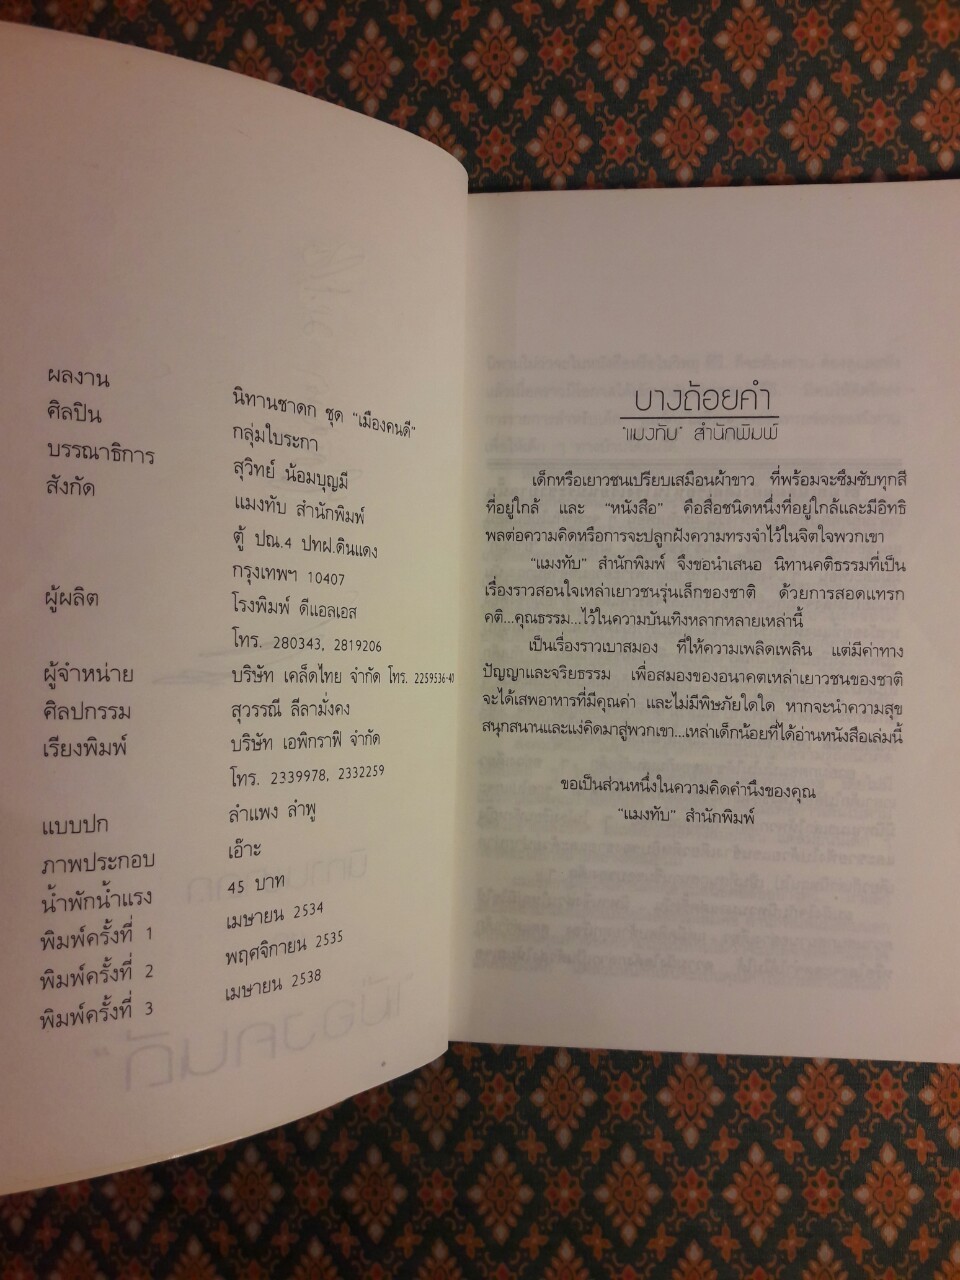 ผลงาน นิทานชาดก ชุด "เมืองคนดี"
ศิลปิน กลุ่มใบระกา
บรรณาธิการ สุวิทย์ น้อมบุญมี
สังกัด แมงทับ สำนักพิมพ์
ตู้ ปณ.4 ปทฝ.ดินแดง
กรุงเทพฯ 10407
ผู้ผลิต โรงพิมพ์ ดีแอลเอส
โทร. 280343, 2819206
ผู้จำหน่าย บริษัท เคล็ดไทย จำกัด โทร. 2259536-40
ศิลปกรรม สุวรรณี ลีลามั่งคง
เรียงพิมพ์ บริษัท เอพิกราฟิ จำกัด
โทร. 2339978, 2332259
แบบปก ลำแพง ลำพู
ภาพประกอบ เอ๊าะ
น้ำพักน้ำแรง 45 บาท
พิมพ์ครั้งที่ 1 เมษายน 2534
พิมพ์ครั้งที่ 2 พฤศจิกายน 2535
พิมพ์ครั้งที่ 3 เมษายน 2538
บางถ้อยคำ
"แมงทับ" สำนักพิมพ์
เด็กหรือเยาวชนเปรียบเสมือนผ้าขาว ที่พร้อมจะซึมซับทุกสี
ที่อยู่ใกล้ และ "หนังสือ" คือสื่อชนิดหนึ่งที่อยู่ใกล้และมีอิทธิ
พลต่อความคิดหรือการจะปลูกฝังความทรงจำไว้ในจิตใจพวกเขา
"แมงทับ" สำนักพิมพ์ จึงขอนำเสนอ นิทานคติธรรมที่เป็น
เรื่องราวสอนใจเหล่าเยาวชนรุ่นเล็กของชาติ ด้วยการสอดแทรก
คติ...คุณธรรม...ไว้ในความบันเทิงหลากหลายเหล่านี้
เป็นเรื่องราวเบาสมอง ที่ให้ความเพลิดเพลิน แต่มีค่าทาง
ปัญญาและจริยธรรม เพื่อสมองของอนาคตเหล่าเยาวชนของชาติ
จะได้เสพอาหารที่มีคุณค่า และไม่มีพิษภัยใดใด หากจะนำความสุข
สนุกสนานและแง่คิดมาสู่พวกเขา...เหล่าเด็กน้อยที่ได้อ่านหนังสือเล่มนี้
ขอเป็นส่วนหนึ่งในความคิดคำนึงของคุณ
"แมงทับ" สำนักพิมพ์